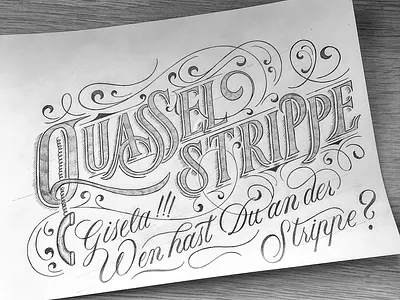 QUASSEL
STRIPPE
Gisela!!!
Wen hast Du an der
Strippe?